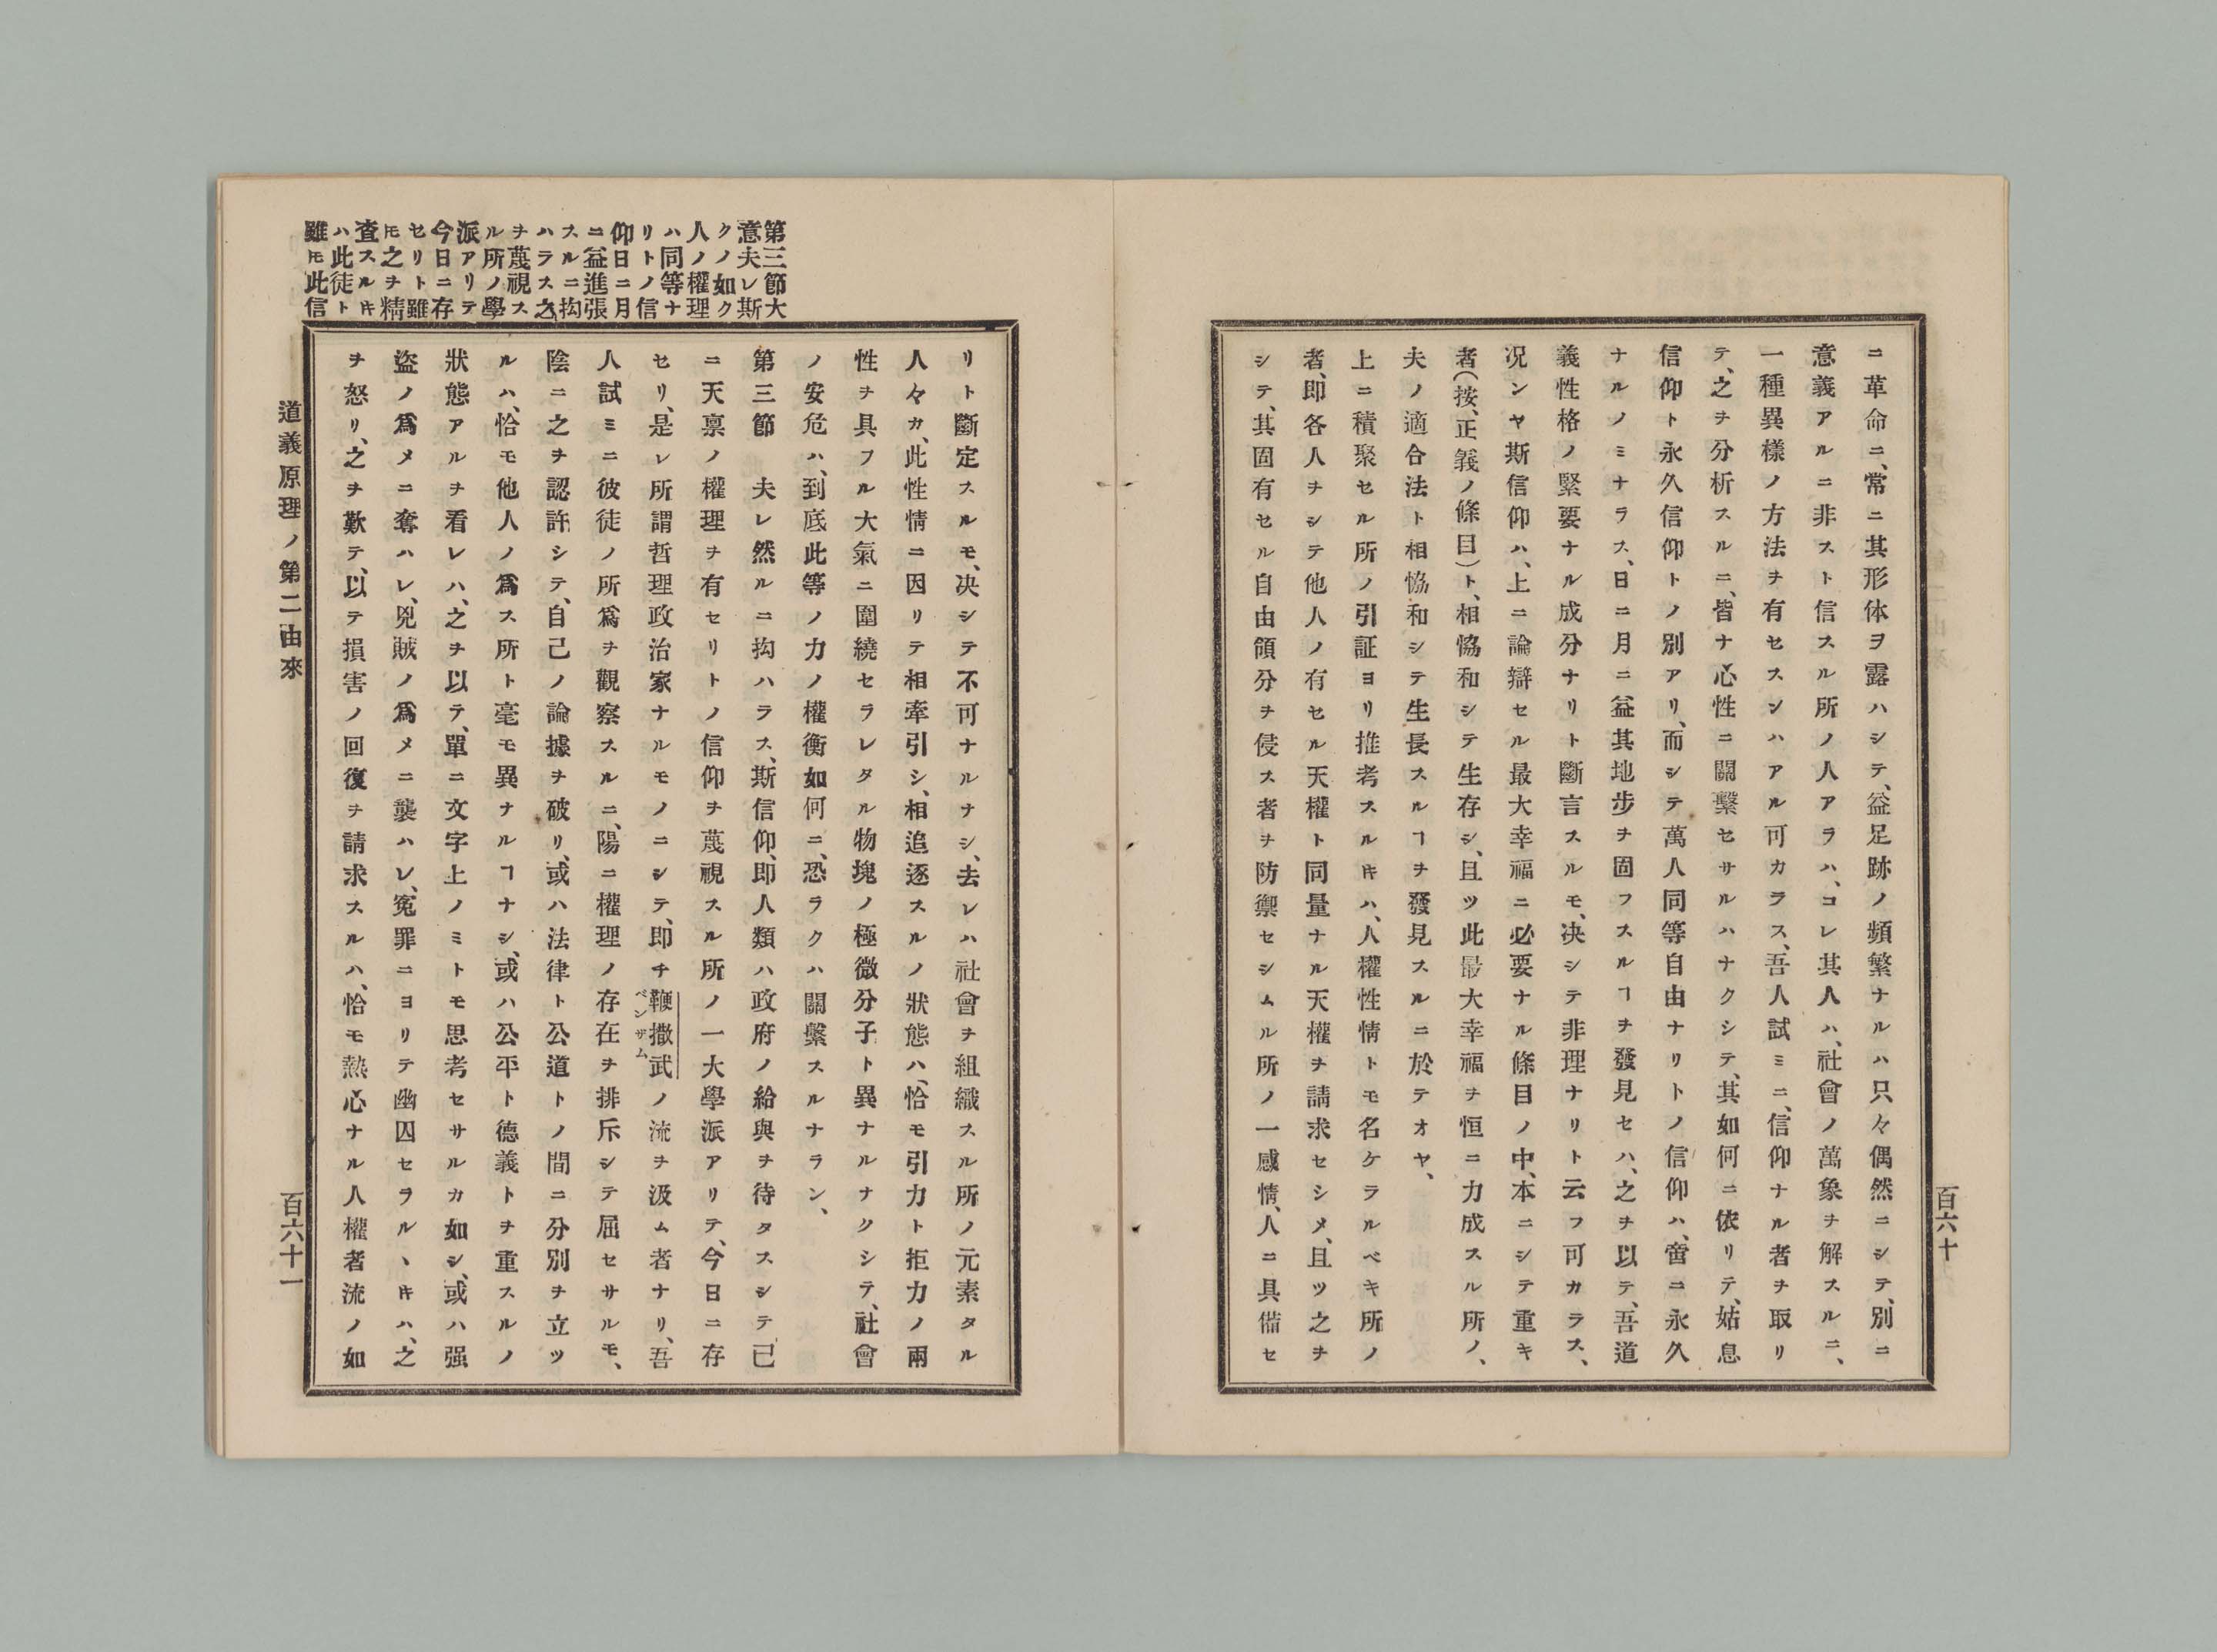 ニ革命ニ、常ニ其形体ヲ露ハシテ、益足跡ノ頻繁ナルハ只々偶然ニシテ、別ニ
意義アルニ非スト信スル所ノ人アラハ、コレ其人ハ、社會ノ萬象ヲ解スルニ、
一種異樣ノ方法ヲ有セスンハアル可カラス、吾人試ミニ、信仰ナル者ヲ取リ
テ、之ヲ分析スルニ、皆ナ心性ニ關繫セサルハナクシテ、其如何ニ依リテ、姑息
信仰ト永久信仰トノ別アリ、而シテ萬人同等自由ナリトノ信仰ハ、啻ニ永久
ナルノミナラス、日ニ月ニ益其地步ヲ固フスルヿヲ發見セハ、之ヲ以テ、吾道
義性格ノ緊要ナル成分ナリト斷言スルモ、决シテ非理ナリト云フ可カラス、
况ンヤ斯信仰ハ、上ニ論辯セル最大幸福ニ必要ナル條目ノ中、本ニシテ重キ
者(按、正義ノ條目)ト、相恊和シテ生存シ、且ツ此最大幸福ヲ恒ニ力成スル所ノ、
夫ノ適合法ト相恊和シテ生長スルヿヲ發見スルニ於テオヤ、
上ニ積聚セル所ノ引証ヨリ推考スルキハ、人權性情トモ名ケラルベキ所ノ
者、即各人ヲシテ他人ノ有セル天權ト同量ナル天權ヲ請求セシメ、且ツ之ヲ
シテ、其固有セル自由領分ヲ侵ス者ヲ防禦セシムル所ノ一感情、人ニ具備セ
百六十
第三節大
意夫レ斯
クノ如ク
人ノ權理
ハ同等ナ
リトノ信
仰日ニ月
ニ益進張
スルニ拘
ハラス之
ヲ蔑視ス
ル所ノ學
派アリテ
今日ニ存
セリト雖
モ之ヲ精
査スルキ
ハ此徒ト
雖モ此信
リト斷定スルモ、决シテ不可ナルナシ、去レハ社會ヲ組織スル所ノ元素タル
人々カ、此性情ニ因リテ相牽引シ、相追逐スルノ狀態ハ、恰モ引力ト拒力ノ兩
性ヲ具フル大氣ニ圍繞セラレタル物塊ノ極微分子ト異ナルナクシテ、社會
ノ安危ハ、到底此等ノ力ノ權衡如何ニ、恐ラクハ關繫スルナラン、
第三節　夫レ然ルニ拘ハラス、斯信仰、即人類ハ政府ノ給與ヲ待タスシテ已
ニ天禀ノ權理ヲ有セリトノ信仰ヲ蔑視スル所ノ一大學派アリテ、今日ニ存
セリ、是レ所謂哲理政治家ナルモノニシテ、即チ鞭撒武ノ流ヲ汲ム者ナリ、吾
ベンサム
人試ミニ彼徒ノ所爲ヲ觀察スルニ、陽ニ權理ノ存在ヲ排斥シテ屈セサルモ、
陰ニ之ヲ認許シテ、自己ノ論據ヲ破リ、或ハ法律ト公道トノ間ニ分別ヲ立ツ
ルハ、恰モ他人ノ爲ス所ト毫モ異ナルヿナシ、或ハ公平ト德義トヲ重スルノ
狀態アルヲ看レハ、之ヲ以テ、單ニ文字上ノミトモ思考セサルカ如シ、或ハ强
盜ノ爲メニ奪ハレ、兇賊ノ爲メニ襲ハレ、寃罪ニヨリテ幽囚セラルヽキハ、之
ヲ怒リ、之ヲ歎テ、以テ損害ノ回復ヲ請求スルハ、恰モ熱心ナル人權者流ノ如
道義原理ノ第二由來
百六十一